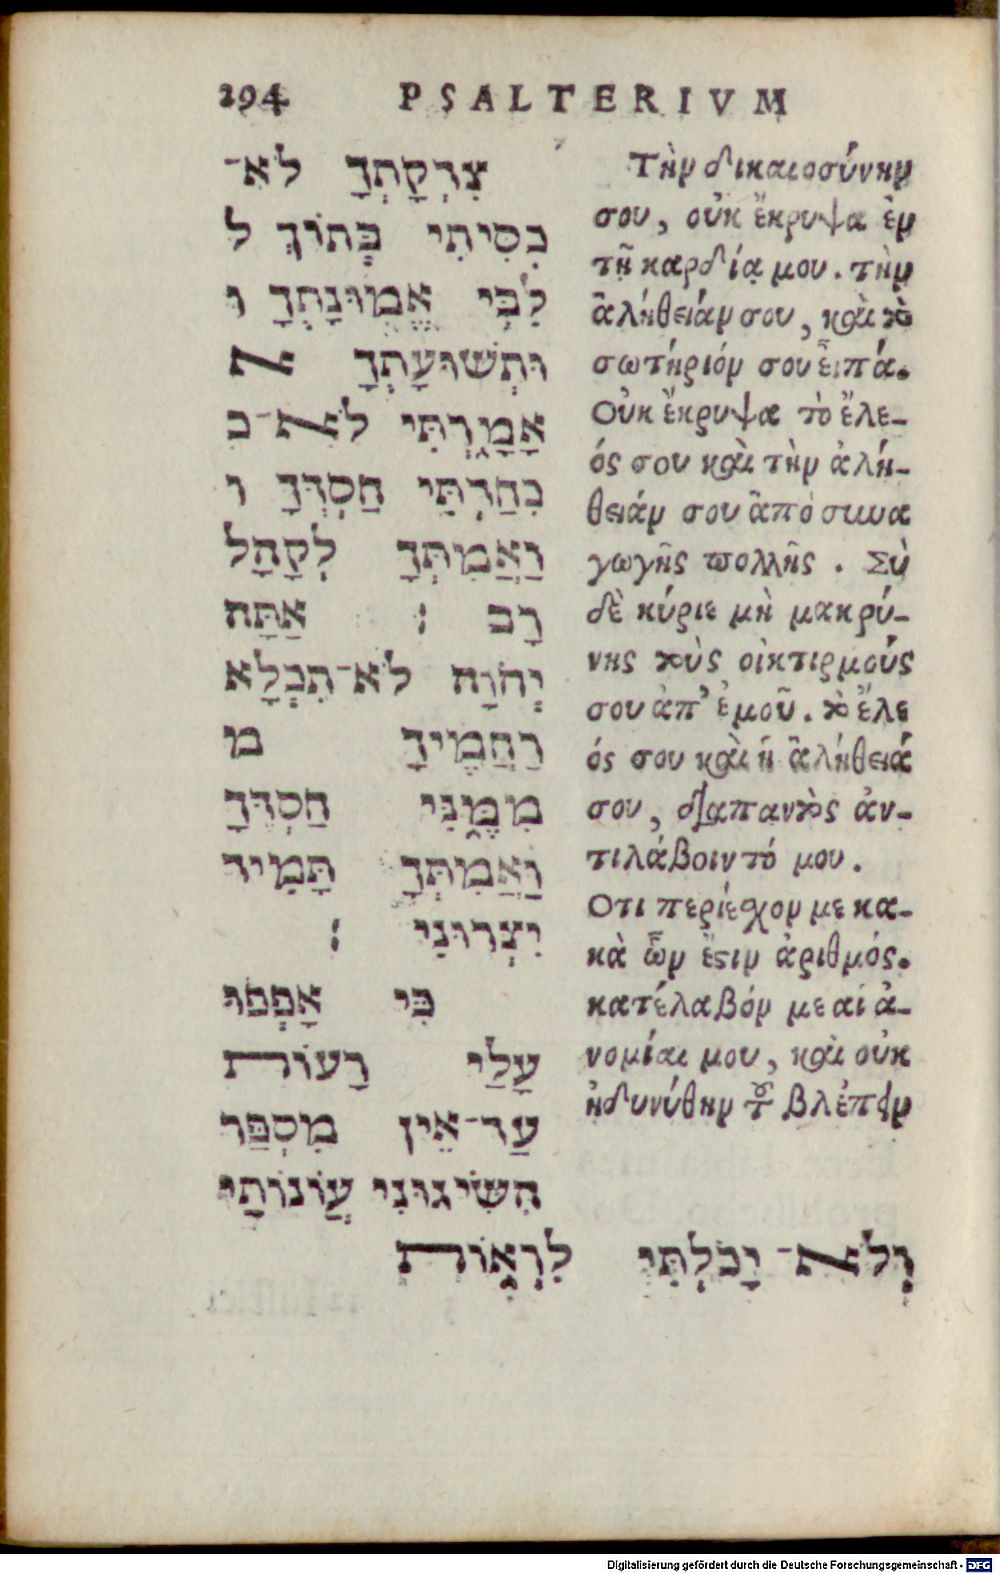 294 PSALTERIVM
צִדְקָתְךָ לֹא־
כִסִּיתִי בְּתוֹךְ ל
לִבִּי אֱמוּנָתְךָ ו
וּתְשׁוּעָתְךָ א
אָמָרְתִּי לֹא־כ
כִחַדְתִּי חַסְדְּךָ ו
וַאֲמִתְּךָ לְקָהָל
רָב : אַתָּה
יְהֹוָה לֹא־תִכְלָא
רַחֲמֶיךָ מ
מִמֶּנִּי חַסְדְּךָ
וַאֲמִתְּךָ תָּמִיד
יִצְּרוּנִי :
כִּי אָפְפוּ
עָלַי רָעוֹת
עַד־אֵין מִסְפַּר
הִשִּׂיגוּנִי עֲוֹנוֹתַי
וְלֹא־יָכֹלְתִּי לִרְאוֹת
Τὴν δικαιοσύνην
σου, οὐκ ἔκρυψα ἐν
τῇ καρδίᾳ μου. τὴν
ἀλήθειάν σου, καὶ τὸ
σωτήριόν σου εἶπα.
Οὐκ ἔκρυψα τὸ ἔλε-
ός σου καὶ τὴν ἀλή-
θειάν σου ἀπὸ συνα
γωγῆς πολλῆς. Σὺ
δὲ κύριε μὴ μακρύ-
νης τοὺς οἰκτιρμούς
σου ἀπ’ ἐμοῦ. τὸ ἔλε
ός σου καὶ ἡ ἀλήθειά
σου, διαπαντὸς ἀν-
τιλάβοιντό μου.
Οτι περιέσχον με κα-
κὰ ὧν ἔστιν ἀριθμός.
κατέλαβόν με αἱ ἀ-
νομίαι μου, καὶ οὐκ
ἠδυνύθην τοῦ βλέπειν
Digitalisierung gefördert durch die Deutsche Forschungsgemeinschaft - DFG